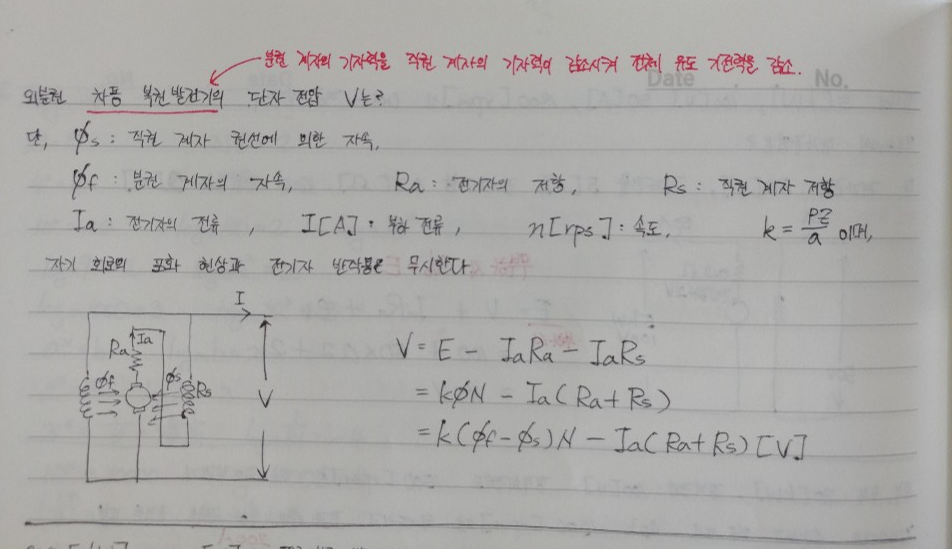 분권 계자의 기자력을 직권 계자의 기자력이 감소시켜 전체 유도 기전력을 감소.
Date . . No.
외분권 차동 복권 발전기의 단자 전압 V는?
단, ϕs : 직권 계자 권선에 의한 자속,
ϕf : 분권 계자의 자속, Ra : 전기자의 저항, Rs : 직권 계자 저항
Ia : 전기자의 전류, I[A] : 부하 전류, n[rps] : 속도, k = PZ/a 이며,
자기 회로의 포화 현상과 전기자 반작용은 무시한다.
I
Ia
Ra
ϕf ϕs Rs
V
V = E - IaRa - IaRs
= kϕN - Ia(Ra+Rs)
= k(ϕf-ϕs)N - Ia(Ra+Rs)[V]